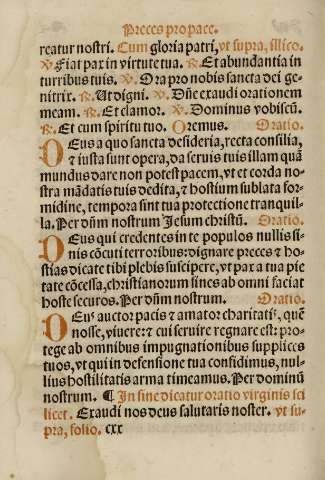 Preces pro pace.
reatur nostri. Cum gloria patri, vt supra, illico.
℣. Fiat pax in virtute tua. ℟. Et abundantia in
turribus tuis. ℣. Ora pro nobis sancta dei ge-
nitrix. ℟. Ut digni. ℣. Dñe exaudi orationem
meam. ℟. Et clamor. ℣. Dominus vobiscũ.
℟. Et cum spiritu tuo. Oremus. Oratio.
DEus a quo sancta desideria, recta consilia,
& iusta sunt opera, da seruis tuis illam quã
mundus dare non potest pacem, vt et corda no-
stra mãdatis tuis dedita, & hostium sublata for-
midine, tempora sint tua protectione tranquil-
la. Per dñm nostrum Jesum christũ. Oratio.
DEus qui credentes in te populos nullis si-
nis cõcuti terroribus: dignare preces & ho-
stias dicate tibi plebis suscipere, vt pax a tua pie
tate cõcessa, christianorum fines ab omni faciat
hoste securos. Per dñm nostrum. Oratio.
DEus auctor pacis & amator charitatis, quẽ
nosse, viuere: & cui seruire regnare est: pro-
tege ab omnibus impugnationibus supplices
tuos, vt qui in defensione tua confidimus, nul-
lius hostilitatis arma timeamus. Per dominũ
nostrum. ¶ In fine dicatur oratio virginis sci
licet. Exaudi nos deus salutaris noster. vt su-
pra, folio. cxx